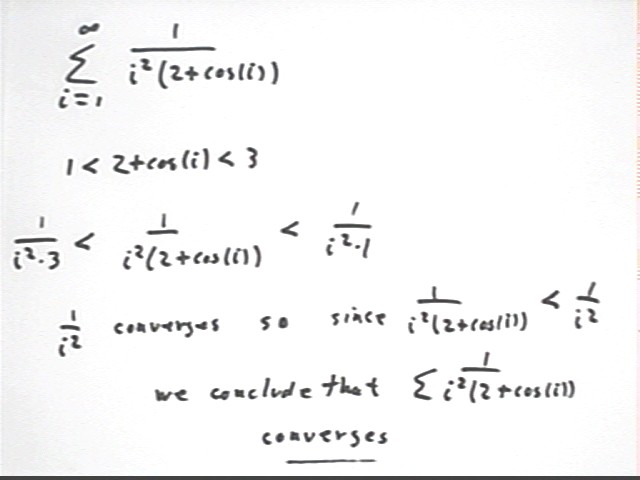 ∞
∑ 1/(i²(2+cos(i)))
i=1
1 < 2+cos(i) < 3
1/(i²·3) < 1/(i²(2+cos(i))) < 1/(i²·1)
1/i² converges so since 1/(i²(2+cos(i))) < 1/i²
we conclude that ∑ 1/(i²(2+cos(i)))
converges